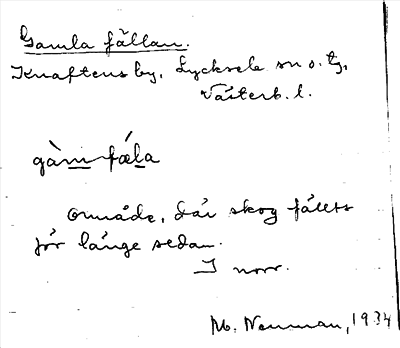 Gamla fällan.
Knaftens by, Lycksele sn o. tg,
Västerb. l.
gàm fǽla
Område, där skog fällts
för länge sedan.
I norr.
M. Neuman, 1934